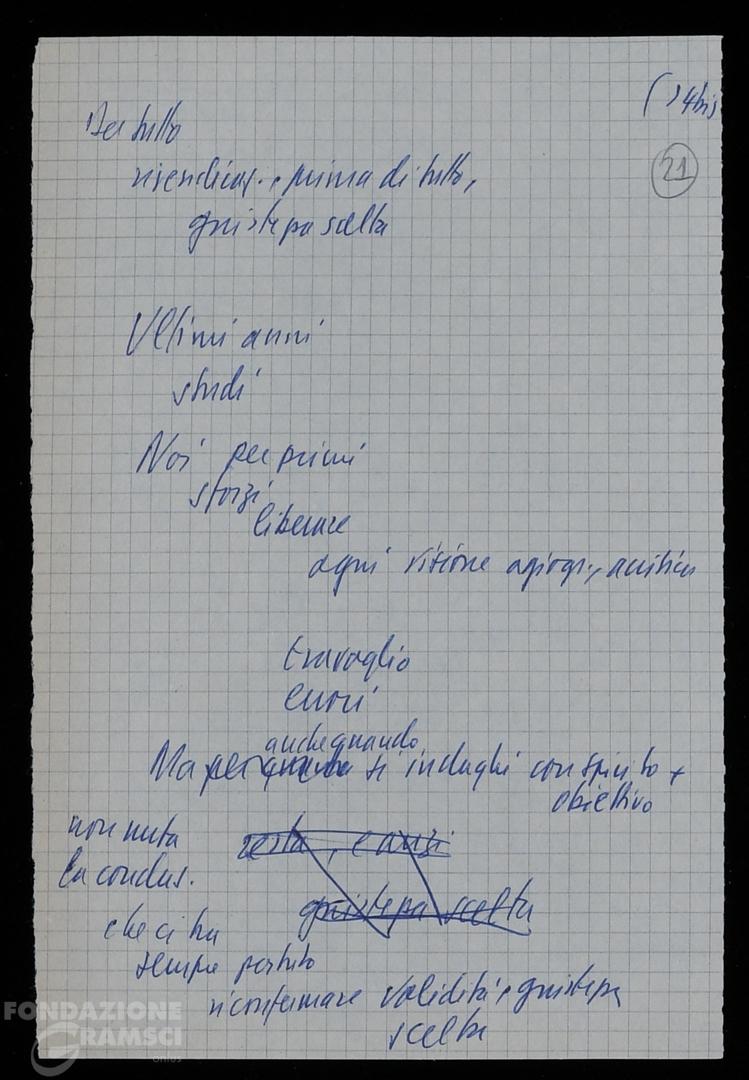 (24bis
21
Per tutto
rivendicaz., prima di tutto,
giustezza scelta
Ultimi anni
studi
Noi per primi
sforzi
liberare
ogni visione agiogr., acritica
travaglio
errori
anche quando
Ma si indaghi con spirito +
obiettivo
non muta
la conclus.
resta, e anzi
giustezza scelta
che ci ha
sempre portato
riconfermare validità, giustezza
scelta
FONDAZIONE
GRAMSCI
onlus